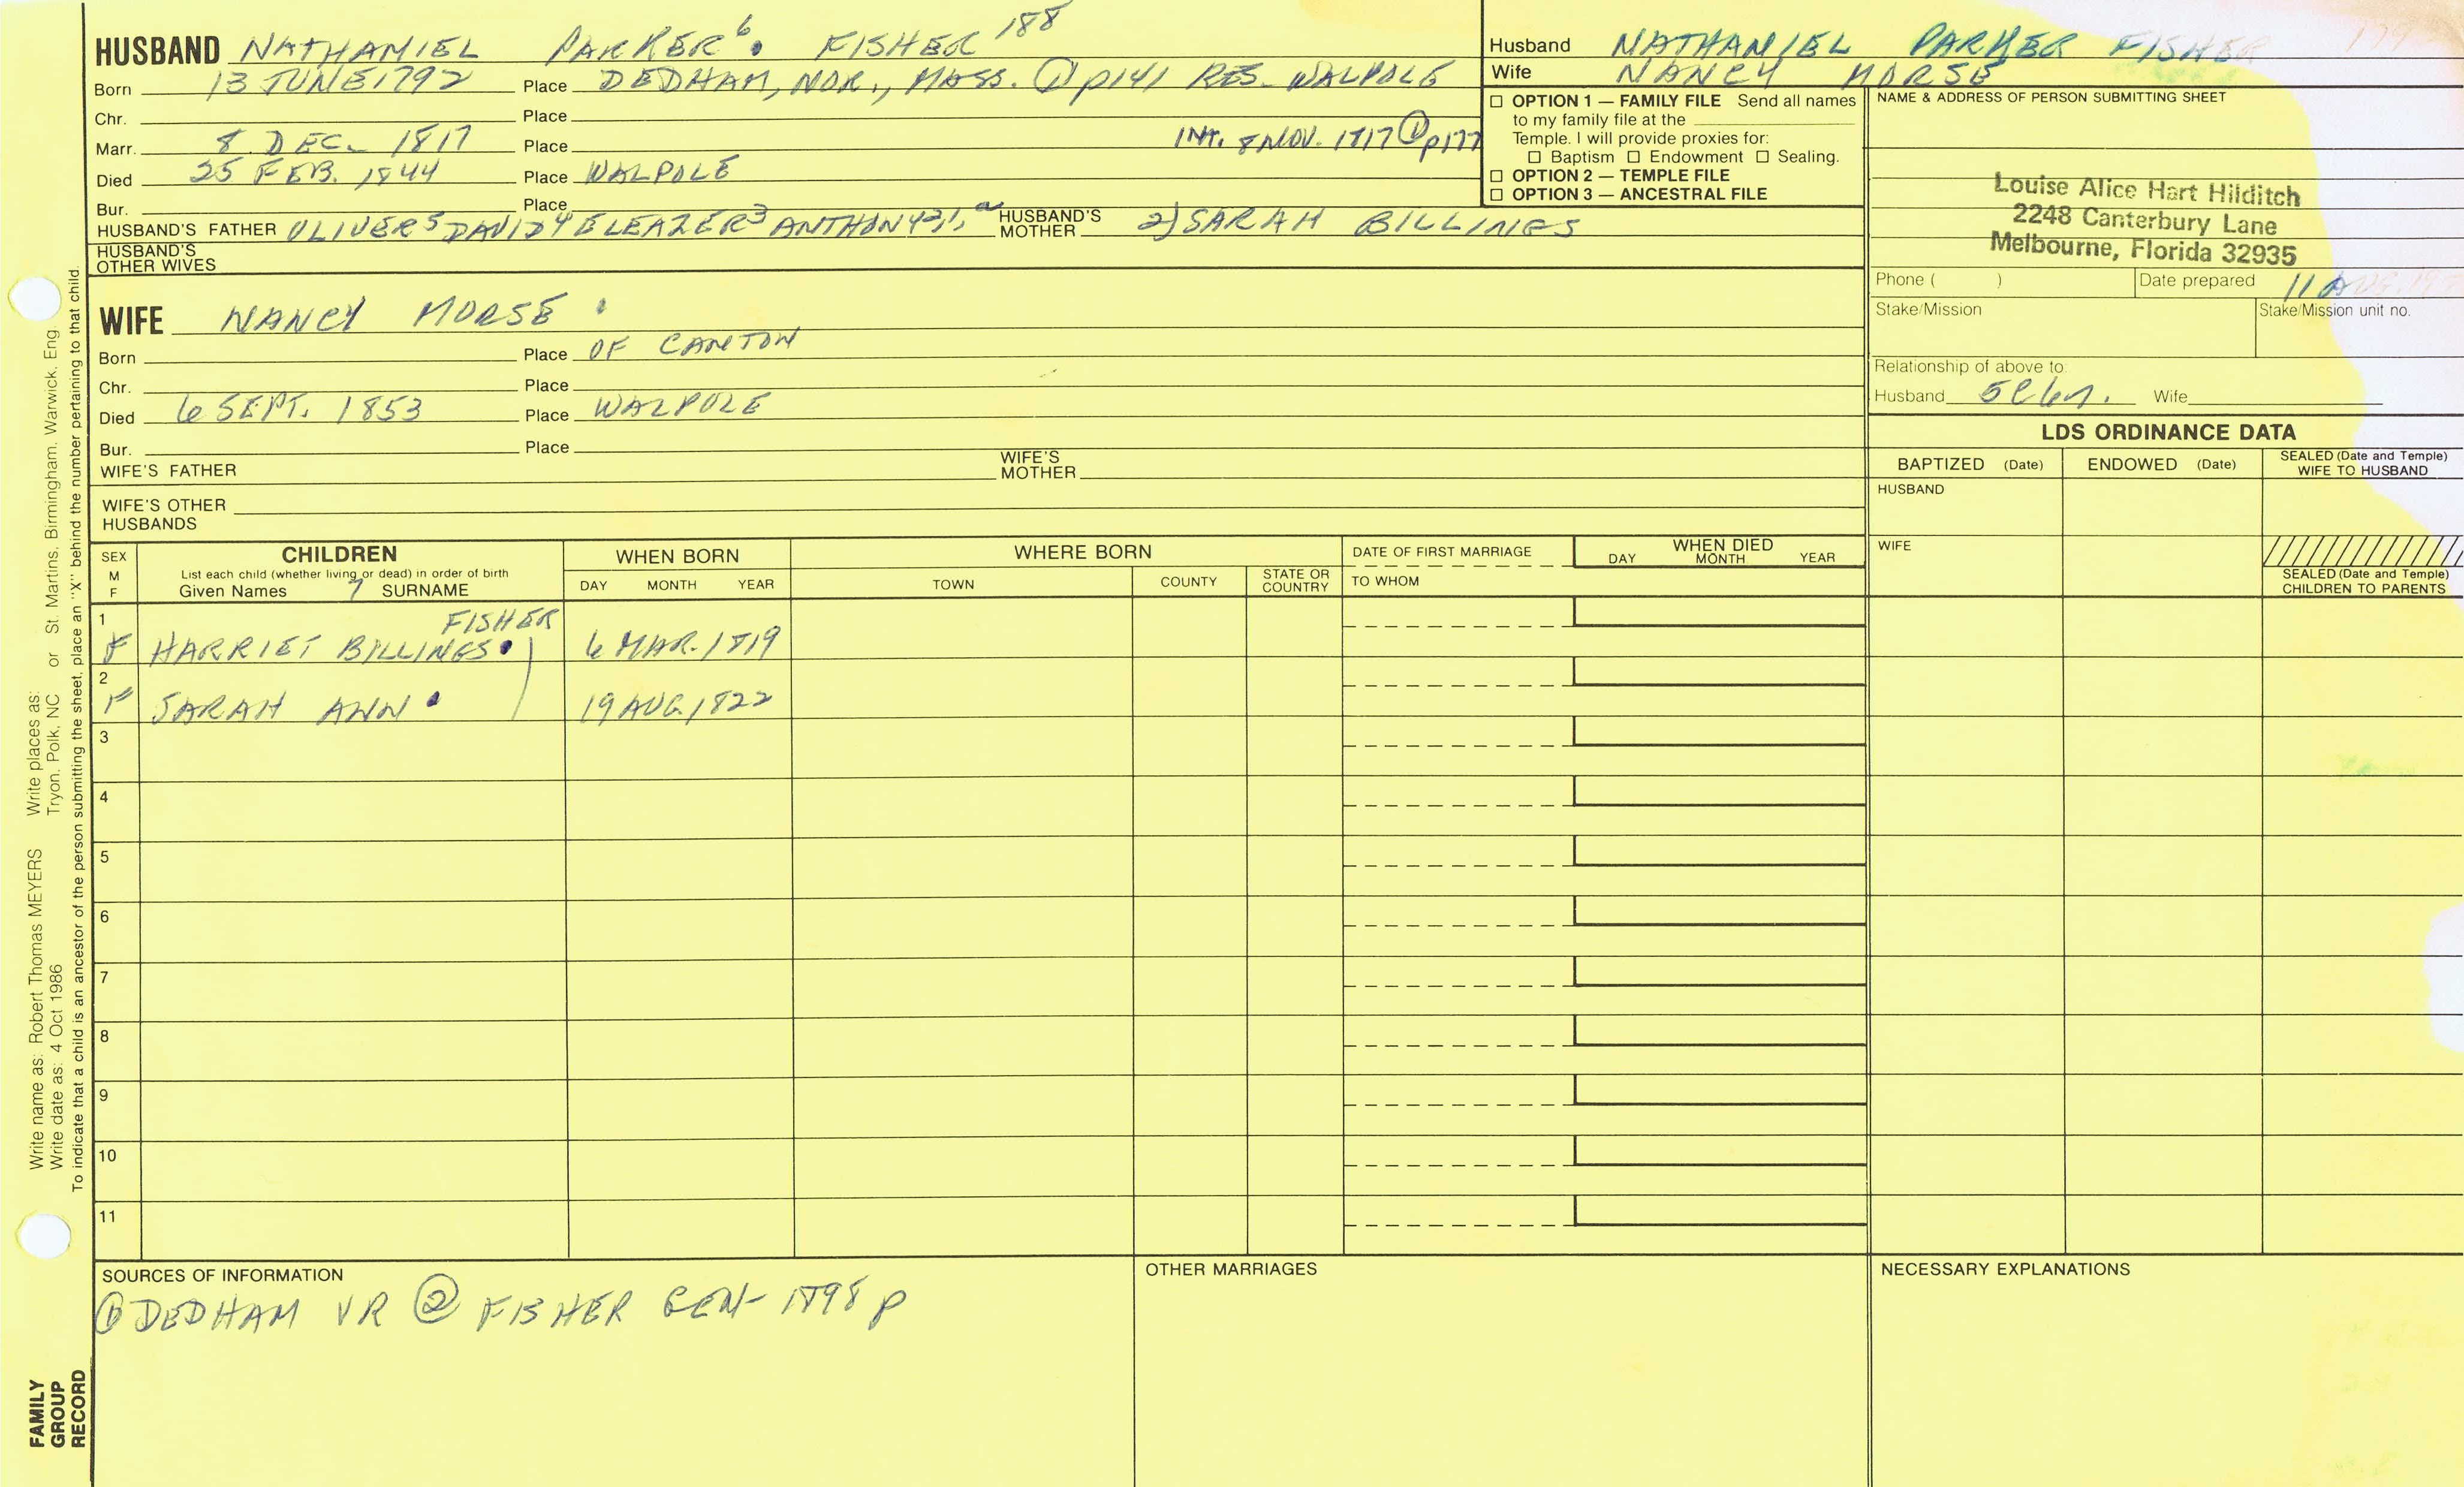 HUSBAND NATHANIEL PARKER 6. FISHER 188
Born 13 JUNE 1792 Place DEDHAM, NOR., MASS. ① p141 RES. WALPOLE
Chr. Place
Marr. 8 DEC. 1817 Place INT. 8 NOV. 1817 ① p177
Died 25 FEB. 1844 Place WALPOLE
Bur. Place
HUSBAND'S FATHER OLIVER 5 DAVID 4 ELEAZER 3 ANTHONY 2,1, a HUSBAND'S MOTHER 2) SARAH BILLINGS
HUSBAND'S OTHER WIVES
Husband NATHANIEL PARKER FISHER
Wife NANCY MORSE
☐ OPTION 1 — FAMILY FILE Send all names
to my family file at the
Temple. I will provide proxies for:
☐ Baptism ☐ Endowment ☐ Sealing.
☐ OPTION 2 — TEMPLE FILE
☐ OPTION 3 — ANCESTRAL FILE
NAME & ADDRESS OF PERSON SUBMITTING SHEET
Louise Alice Hart Hilditch
2248 Canterbury Lane
Melbourne, Florida 32935
Phone ( ) Date prepared 11
Stake/Mission Stake/Mission unit no.
Relationship of above to:
Husband Wife
WIFE NANCY MORSE
Born Place OF CANTON
Chr. Place
Died 6 SEPT. 1853 Place WALPOLE
Bur. Place
WIFE'S FATHER WIFE'S MOTHER
WIFE'S OTHER HUSBANDS
LDS ORDINANCE DATA
BAPTIZED (Date) ENDOWED (Date) SEALED (Date and Temple) WIFE TO HUSBAND
HUSBAND
WIFE
SEALED (Date and Temple) CHILDREN TO PARENTS
SEX M F CHILDREN List each child (whether living or dead) in order of birth Given Names 7 SURNAME
WHEN BORN DAY MONTH YEAR
WHERE BORN TOWN COUNTY STATE OR COUNTRY
DATE OF FIRST MARRIAGE TO WHOM
WHEN DIED DAY MONTH YEAR
1 FISHER
F HARRIET BILLINGS 6 MAR. 1819
2
F SARAH ANN 19 AUG. 1822
3
4
5
6
7
8
9
10
11
SOURCES OF INFORMATION
① DEDHAM VR ② FISHER GEN- 1898 p
OTHER MARRIAGES
NECESSARY EXPLANATIONS
Write name as: Robert Thomas MEYERS Write places as: Tryon, Polk, NC or St. Martins, Birmingham, Warwick, Eng
Write date as: 4 Oct 1986
To indicate that a child is an ancestor of the person submitting the sheet, place an "X" behind the number pertaining to that child.
FAMILY
GROUP
RECORD